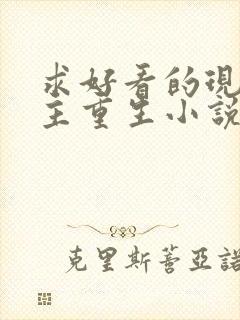 求好看的現
主重生小說
克里斯蒂亞諾